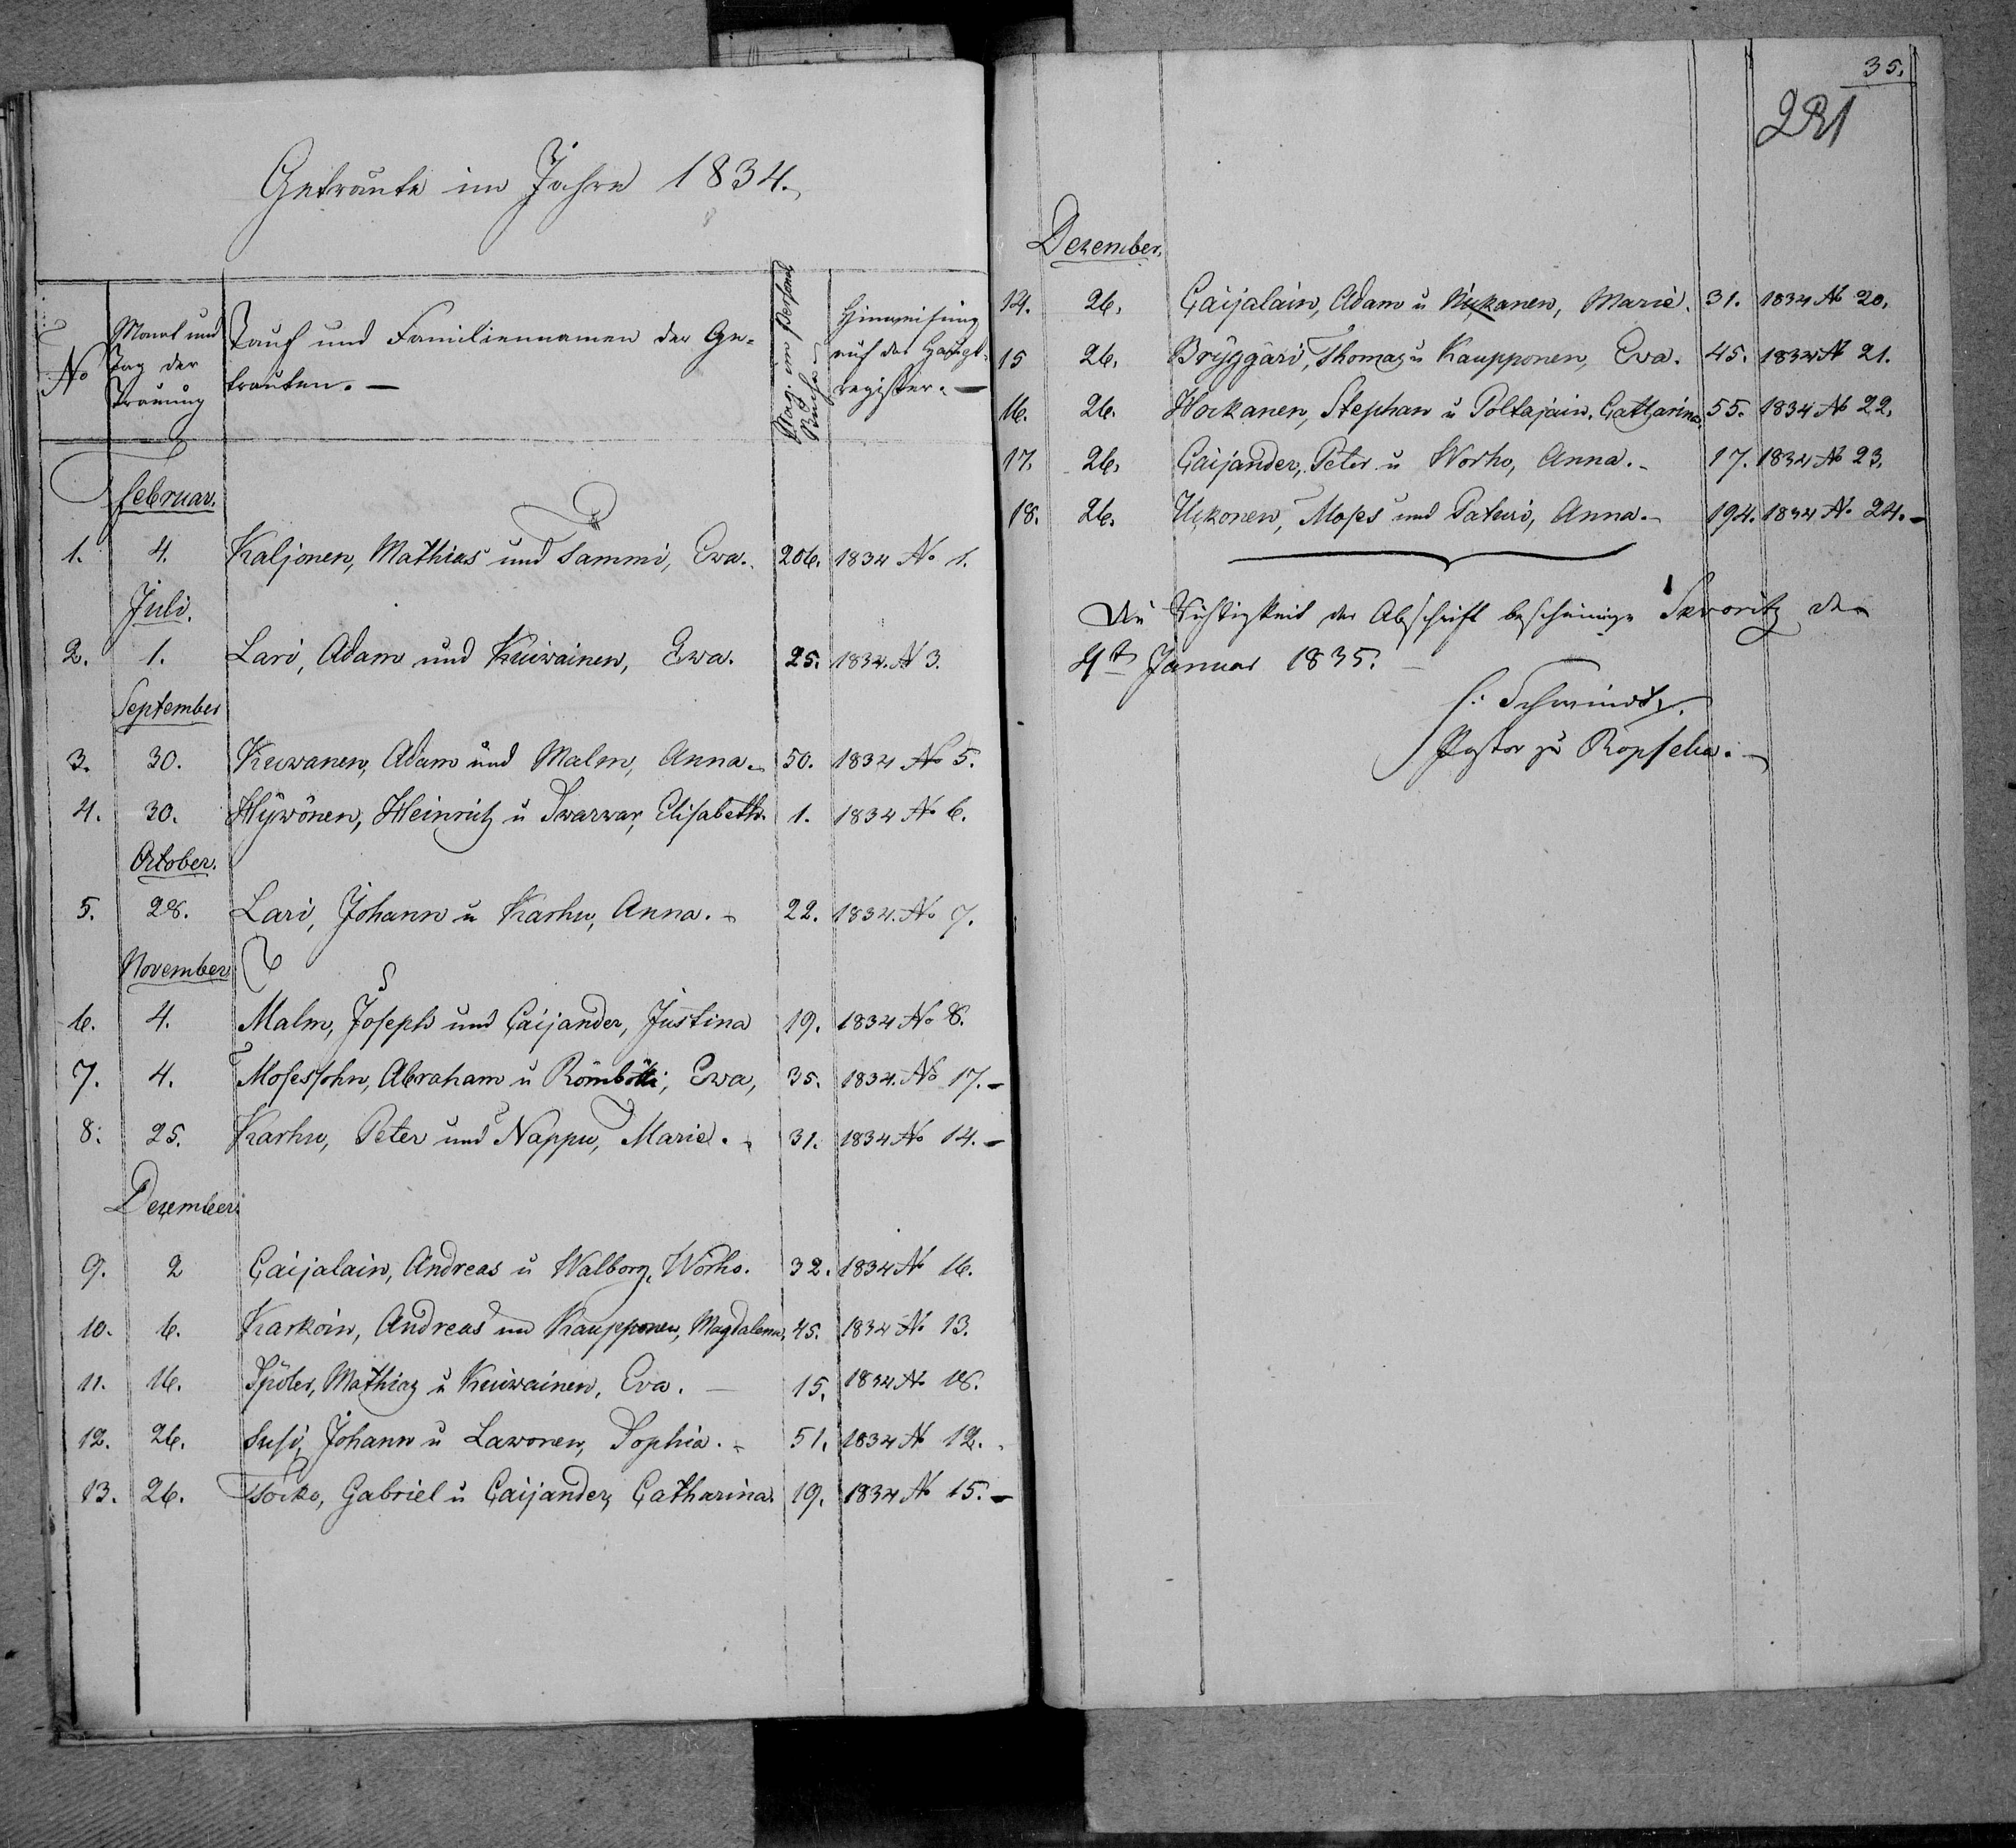 Getraute im Jahre 1834.
No
Monat und
Tag der
Trauung
Tauf und Familiennamen der Ge-
trauten. —
Pag. im Personal
Buche
Hinweisung
auf das Haupt-
register. —
Februar.
1. 4. Kaljonen, Mathias und Sammi, Ewa. 206. 1834 No 1.
Juli.
2. 1. Lari, Adam und Kuiwainen, Ewa. 25. 1834. No 3.
September
3. 30. Kuwanen, Adam und Malm, Anna. 50. 1834 No 5.
4. 30. Hÿwönen, Heinrich u Swarwar, Elisabeth. 1. 1834 No 6.
October.
5. 28. Lari, Johann u Karhu, Anna. 22. 1834. No 7.
November
6. 4. Malm, Joseph und Caijander, Justina 19. 1834 No 8.
7. 4. Mosessohn, Abraham u Römbötti, Ewa, 35. 1834. No 17. –
8. 25. Karhu, Peter und Nappu, Marie. 31. 1834 No 14. –
Dezember
9. 2 Caijalain, Andreas u Walborg, Worho. 32. 1834 No 16.
10. 6. Karkoin, Andreas und Kaupponen, Magdalena, 45. 1834 No 13.
11. 16. Spöler, Mathias u Kuiwainen, Eva. — 15. 1834 No 18.
12. 26. Susi, Johann u Laworen, Sophia. 51. 1834 No 12.
13. 26. Gabriel u Caijander, Catharina. 19. 1834 No 15. –
35.
221
Dezember.
14. 26. Caijalain, Adam u Marie. 31. 1834 No 20.
15 26. Brÿggäri, Thomas u Kaupponen, Eva. 45. 1834 No 21.
16. 26. Hockanen, Stephan u Poltajain, Catharina, 55. 1834 No 22.
17. 26. Caijander, Peter u Worho, Anna. 17. 1834 No 23.
18. 26. Uckonen, Moses und Paturi, Anna. 194. 1834 No 24. –
Die Richtigkeit der Abschrift bescheinige Skworitz den
4t Januar 1835. –
Schmindt,
Pastor zu Ropscha. –